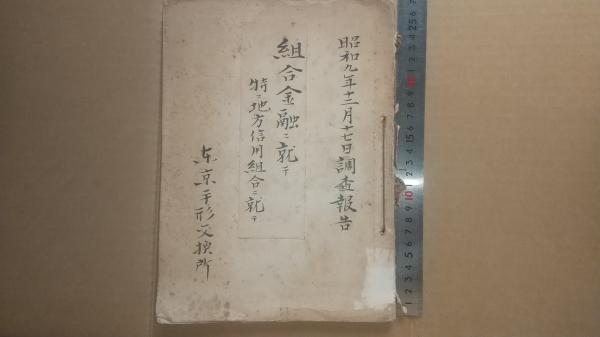 昭和九年十二月十七日調査報告
組合金融ニ就テ
特ニ地方信用組合ニ就テ
東京手形交換所